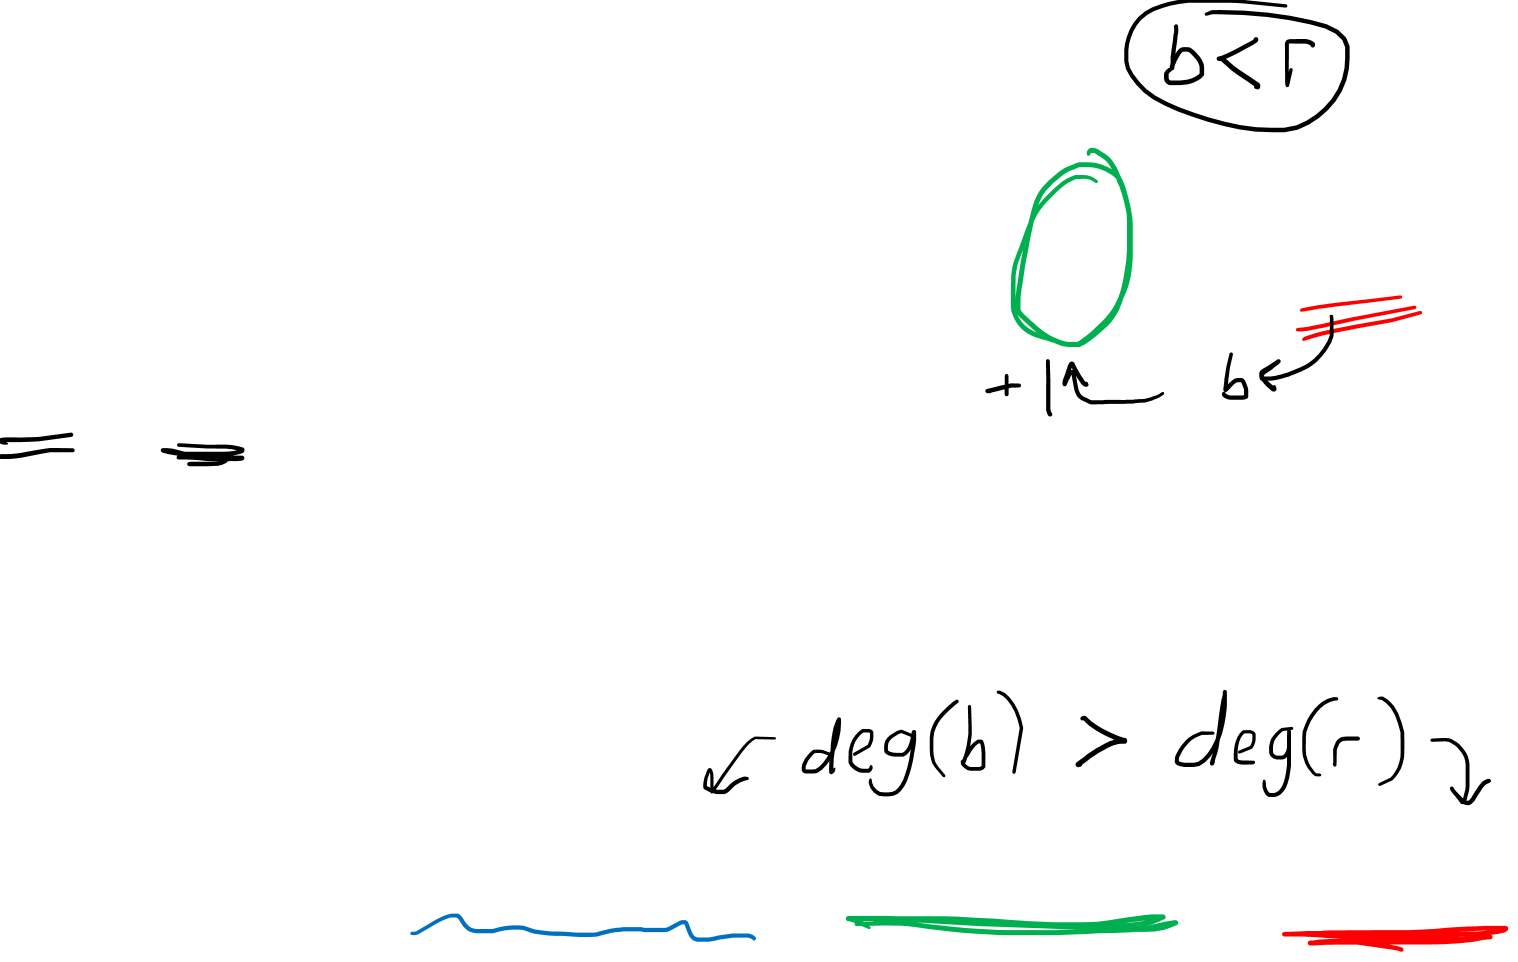 b < r
+1 b
=
deg(b) > deg(r)